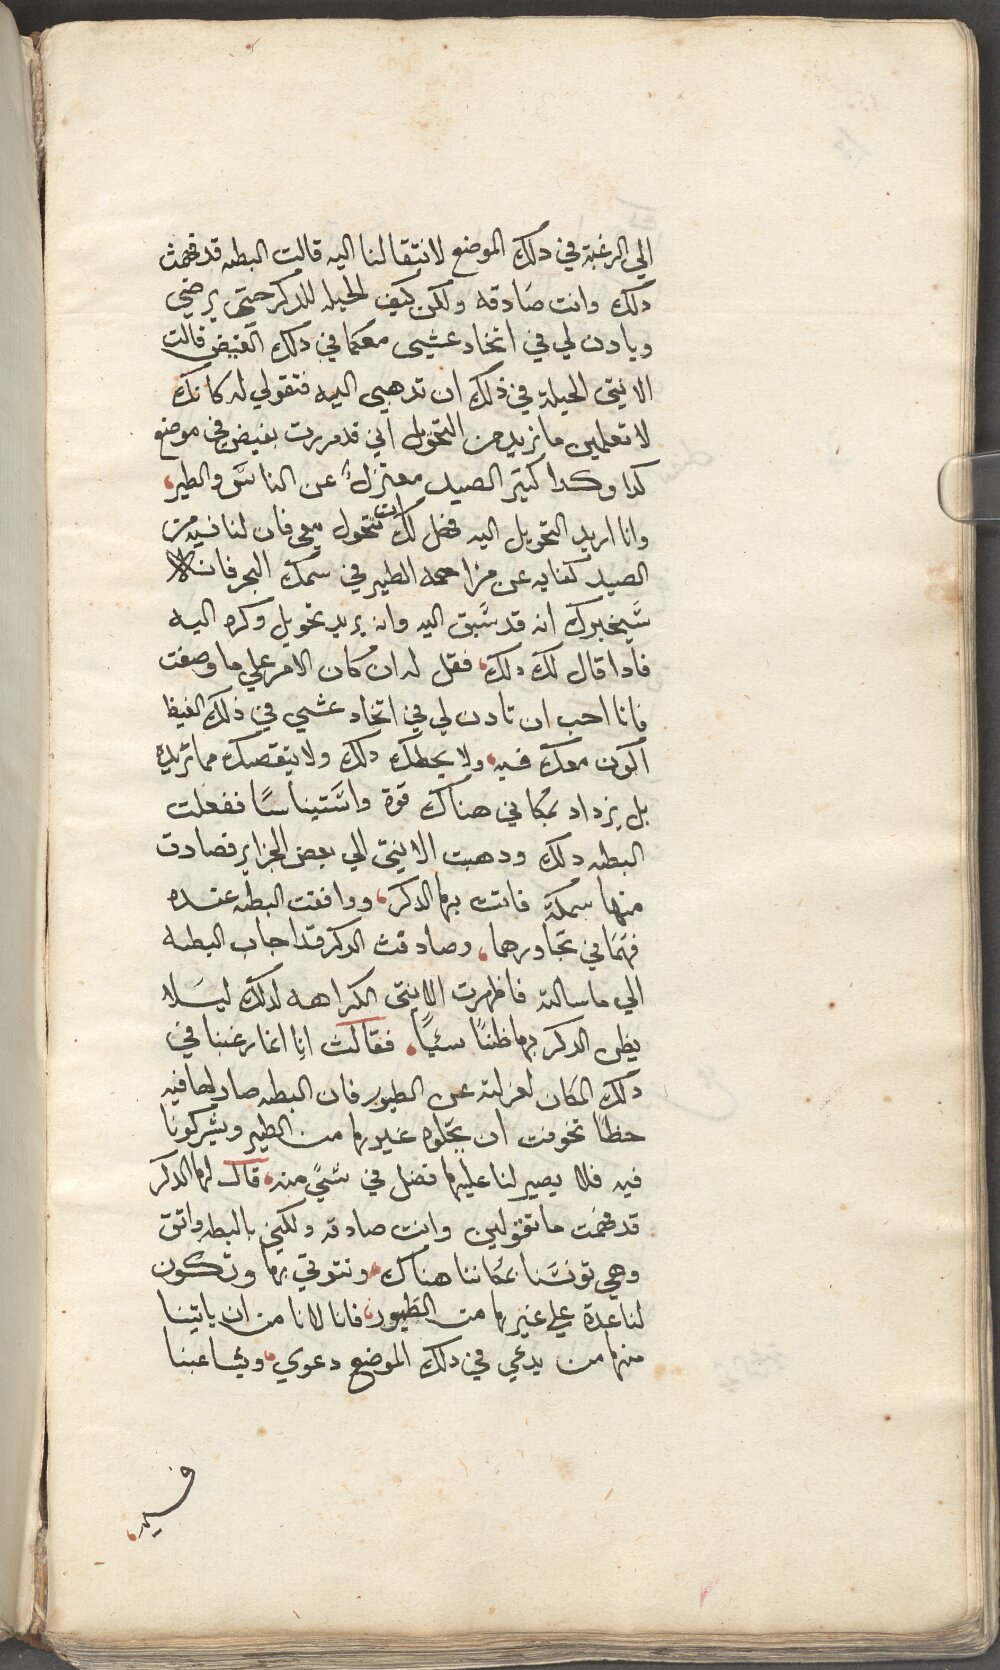 الي الرغبة في دلك الموضع لانتقالنا اليه قالت البطه قد فهمت
دلك وانت صادقه ولكن كيف الحيله للدكر حتي يرضي
ويادن لي في اتخاد عشي معكما في دلك الغيض قالت
الانتي الحيلة في ذلك ان تدهبي اليه فتقولي له كانك
لا تعلمين ما نريد من التحويل اني قد مررت بغيض في موضع
كدا وكدا كتير الصيد معتزلٌ عن الناس والطير،
وانا اريد التحويل اليه فهل لك ان تتحول معي فان لنا فيه من
الصيد كفايه عن مزاحمه الطير في سمك البحر فانه
سيخبرك انه قد سبق اليه وانه يريد تحويل وكره اليه
فادا قال لك دلك، فقل له ان كان الامر علي ما وصفت
فانا احب ان تادن لي في اتخاد عشي في ذلك الغيظ
اكون معك فيه، ولا يحطك دلك ولا ينقصك مما تريده
بل يزداد بمكاني هناك قوة واستيناسًا ففعلت
البطه دلك ودهبت الانيتي الي بعض الجزاير فصادت
منها سمكة فاتت بها الدكر، ووافقت البطه عنده
فهما في تجاورهما، وصادفت الدكر قد اجاب البطه
الي ما سالته فاظهرت الانيتي الكراهه لدلك ليلا
يظن الدكر بها ظنًا سئيًا، فقالت انا انما رغبنا في
دلك المكان لعزلته عن الطيور فان البطه صار لها فيه
حظًا تخوفت ان يحلوه غيرها من الطير ويشركونا
فيه فلا يصير لنا عليها فضل في شيً منه، قال لها الدكر
قد فهمت ما تقولين وانت صادقه ولكني بالبطه واتق
وهي تونسنا بمكاننا هناك، ونتوقي بها وتكون
لنا عدة علي غيرها من الطيور، فانا لانا من ان ياتينا
منها من يدعي في دلك الموضع دعوي، ويشاغبنا
فيه،